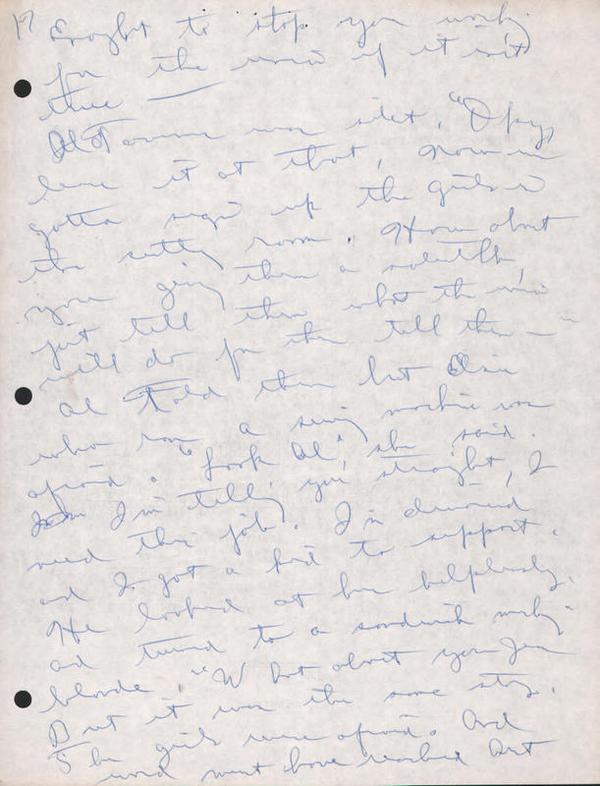 17 ought to stop you
for the union if it isn't
true
Al was silent. "Okay,
leave it at that, now we
gotta sign up the girls in
the cutting room. How about
you giving them a
just tell them what the union
will do for them tell them —
Al told them but Elsie
who ran a sewing machine was
afraid. "Look Al", she said.
I'm telling you straight, I
need this job. I'm divorced
and I got a kid to support.
He looked at her helplessly
and turned to a sandwich
blonde. "What about you Jean
But it was the same story.
The girls were afraid. And
word must have reached Art